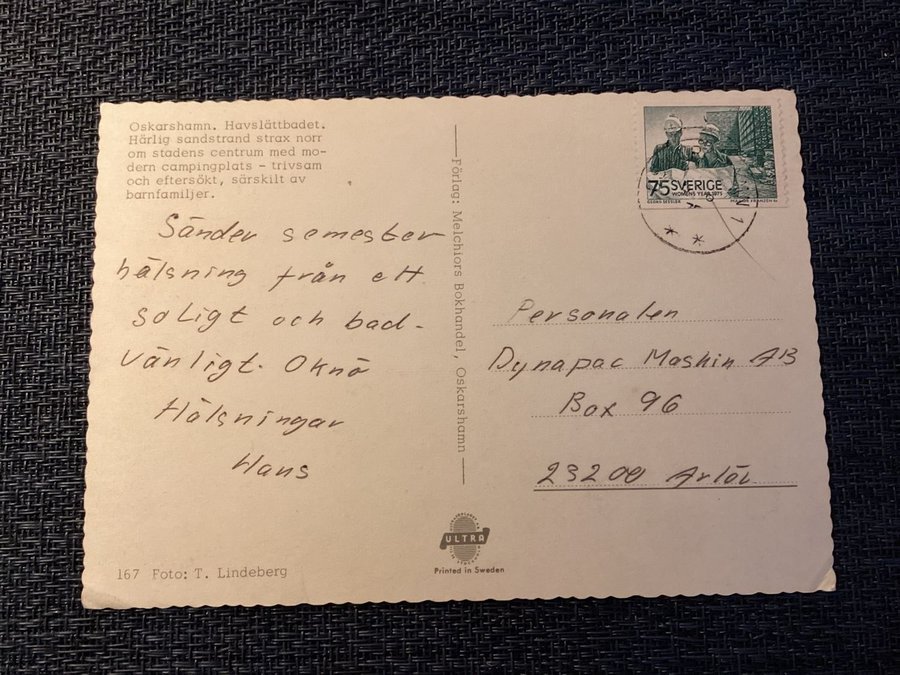 Oskarshamn. Havslättbadet.
Härlig sandstrand strax norr
om stadens centrum med mo-
dern campingplats - trivsam
och eftersökt, särskilt av
barnfamiljer.
Sänder semester
hälsning från ett
soligt och bad-
vänligt. Oknö
Hälsningar
Hans
167 Foto: T. Lindeberg
Förlag: Melchiors Bokhandel, Oskarshamn
ULTRA
Printed in Sweden
75 SVERIGE
WOMENS YEAR 1975
GEORG SESSLER
Personalen
Dynapac Maskin AB
Box 96
23200 Arlöv